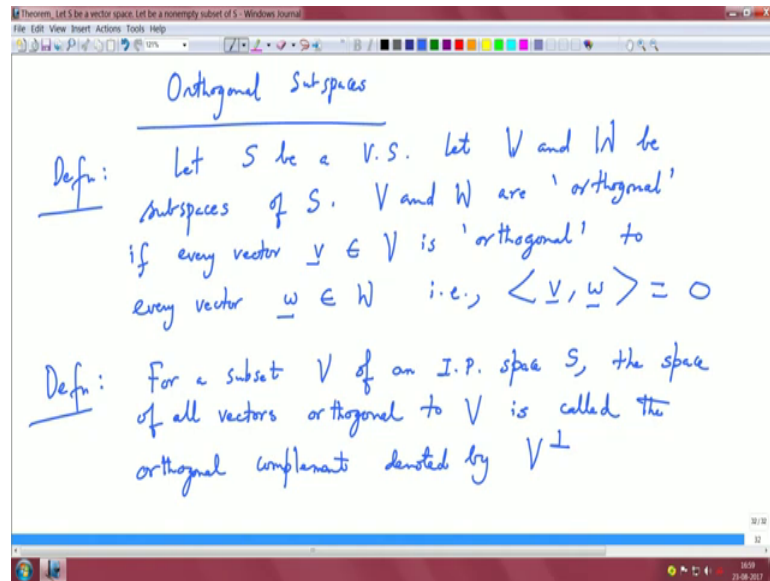 Theorem_ Let S be a vector space. Let be a nonempty subset of S - Windows Journal
File Edit View Insert Actions Tools Help
121%
Orthogonal Subspaces
Defn: Let S be a V.S. Let V and W be
subspaces of S. V and W are 'orthogonal'
if every vector v ∈ V is 'orthogonal' to
every vector w ∈ W i.e., <v, w> = 0
Defn: For a subset V of an I.P. space S, the space
of all vectors orthogonal to V is called the
orthogonal complement denoted by V⊥
32/32
32
16:59
23-08-2017